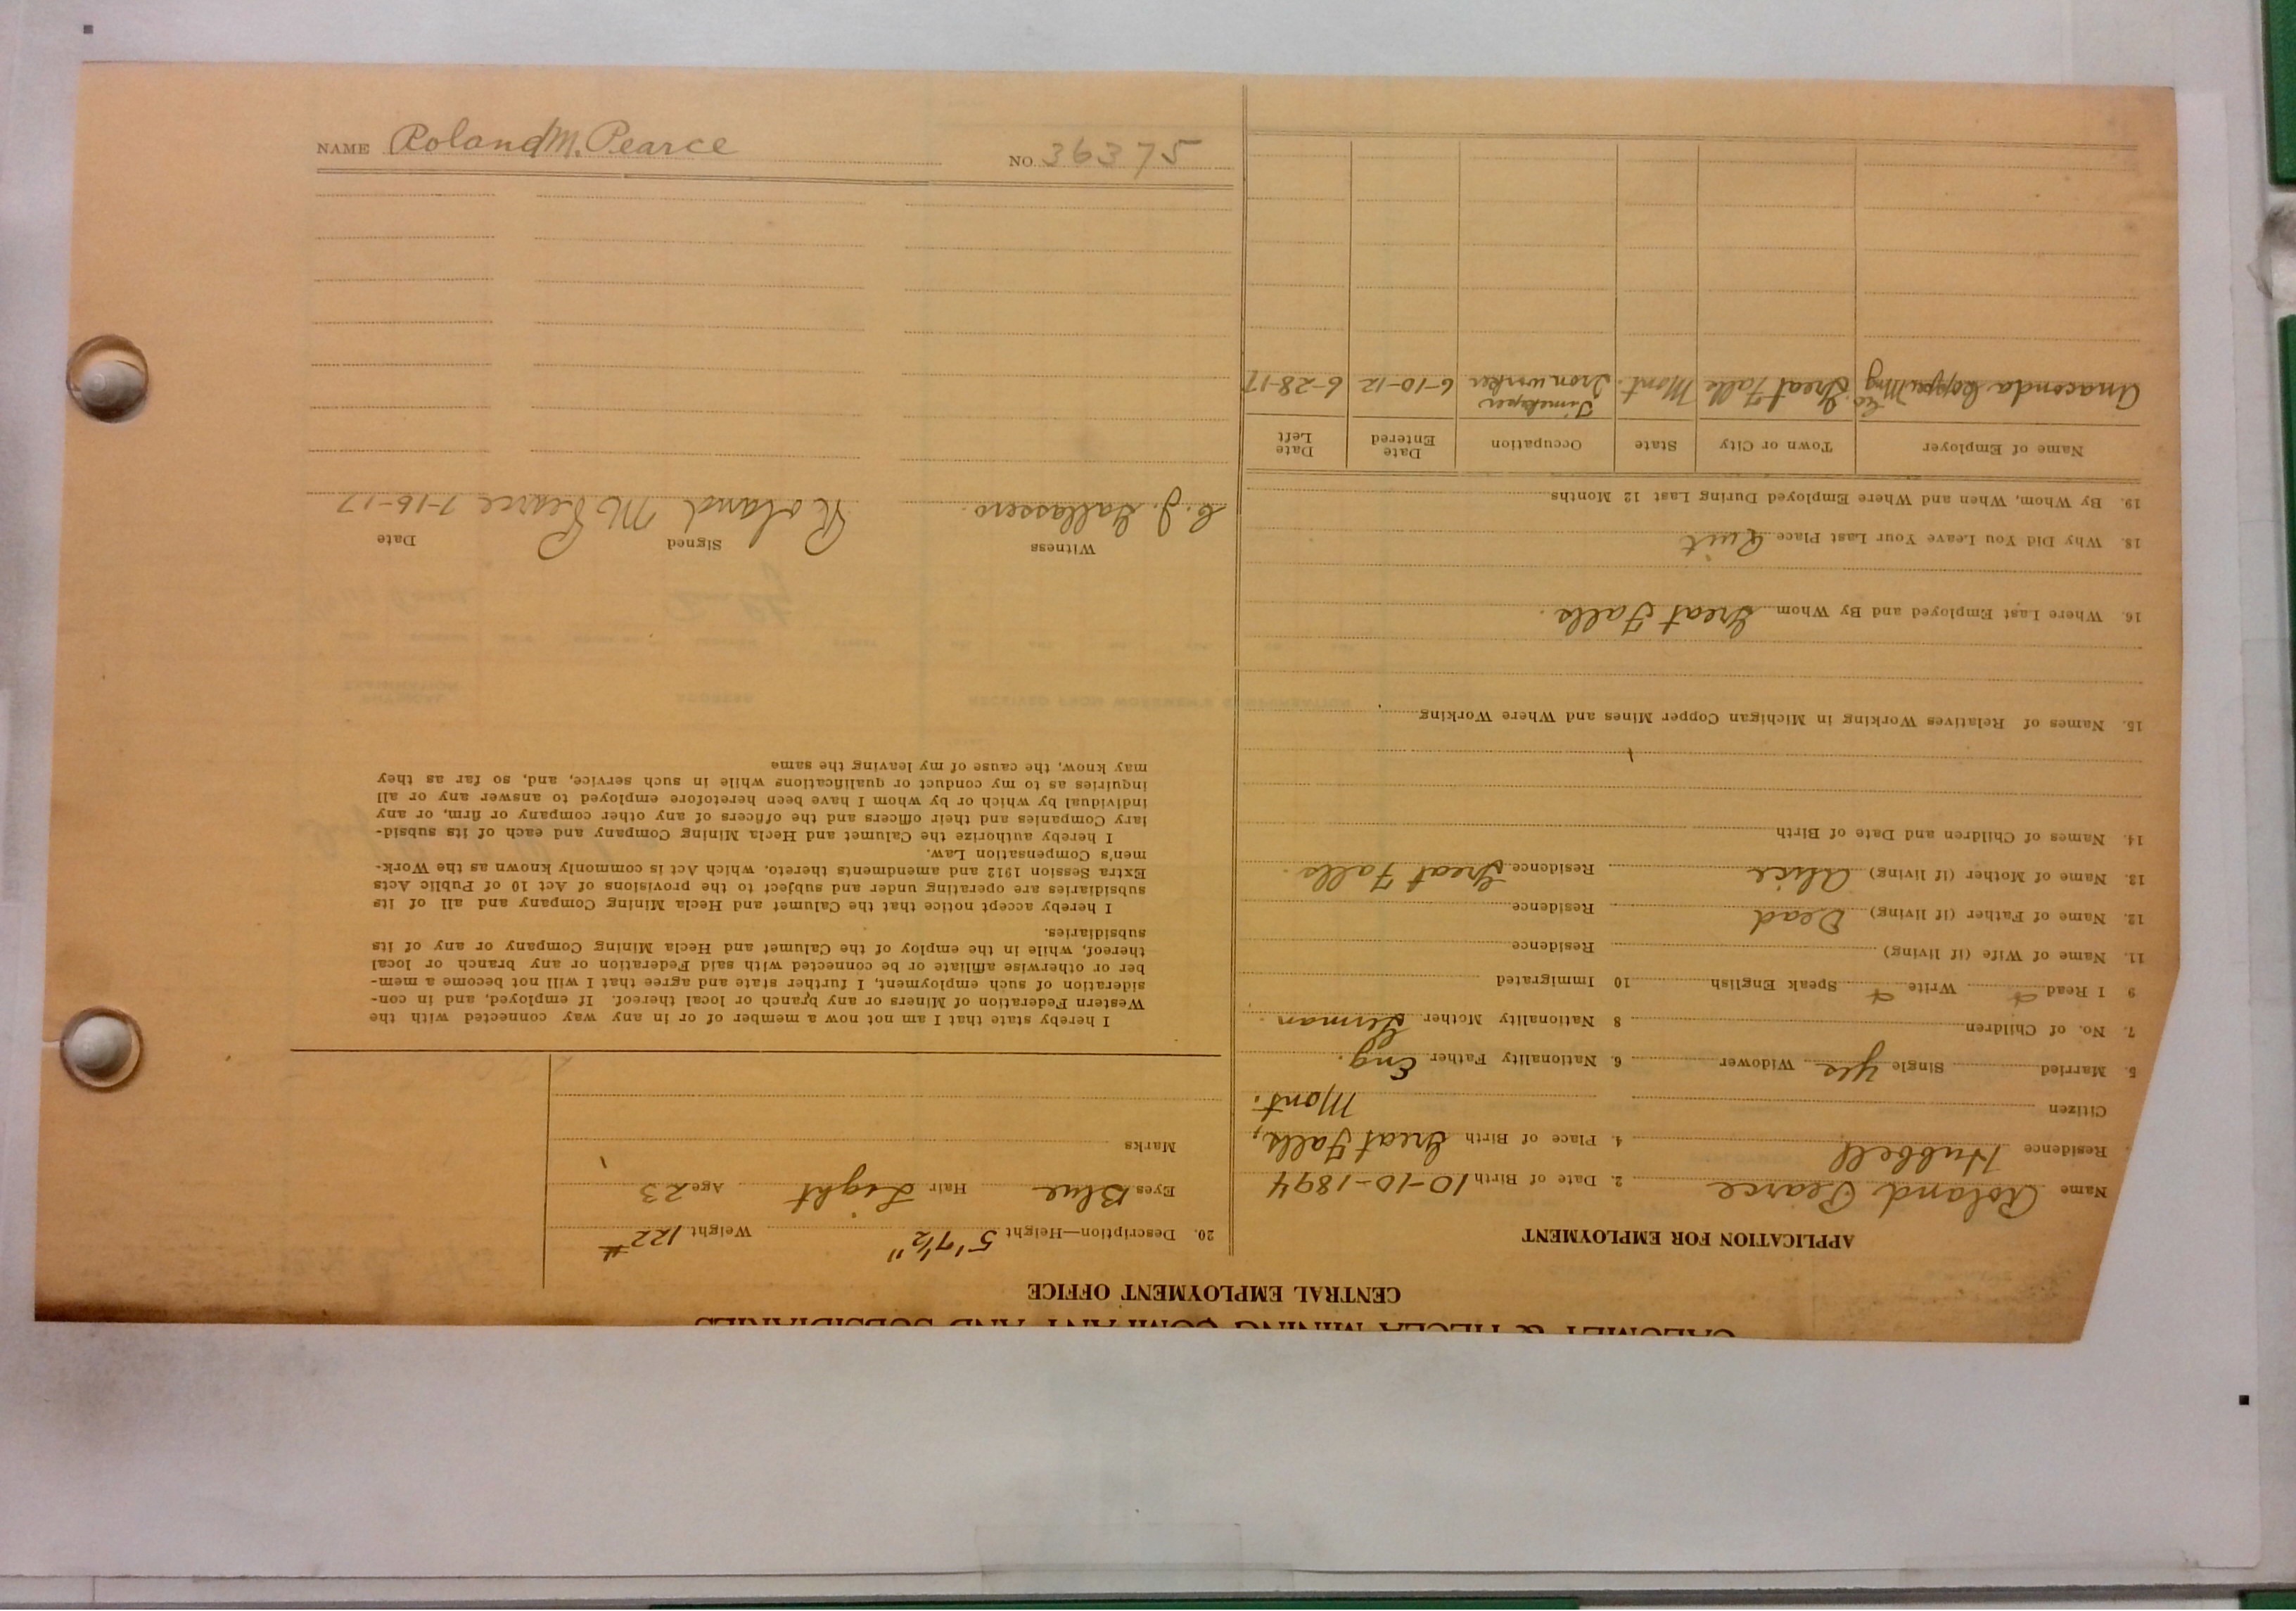 CALUMET & HECLA MINING COMPANY AND SUBSIDIARIES
CENTRAL EMPLOYMENT OFFICE
APPLICATION FOR EMPLOYMENT
Name Roland Pearce 2. Date of Birth 10-10-1894
Residence Hubbell 4. Place of Birth Great Falls,
Citizen Mont.
5. Married Single yes Widower 6. Nationality Father Eng.
7. No. of Children 8 Nationality Mother German
9 I Read Write Speak English 10 Immigrated
11. Name of Wife (if living) Residence
12. Name of Father (if living) Dead Residence
13. Name of Mother (if living) Alice Residence Great Falls.
14. Names of Children and Date of Birth
15. Names of Relatives Working in Michigan Copper Mines and Where Working
16. Where Last Employed and By Whom Great Falls.
18. Why Did You Leave Your Last Place Quit
19. By Whom, When and Where Employed During Last 12 Months
Name of Employer Town or City State Occupation Date Entered Date Left
Anaconda Copper Mng Co. Great Falls Mont. Timekeeper Iron worker 6-10-12 6-28-17
20. Description—Height 5' 7½" Weight 122#
Eyes Blue Hair Light Age 23
Marks
I hereby state that I am not now a member of or in any way connected with the
Western Federation of Miners or any branch or local thereof. If employed, and in con-
sideration of such employment, I further state and agree that I will not become a mem-
ber or otherwise affiliate or be connected with said Federation or any branch or local
thereof, while in the employ of the Calumet and Hecla Mining Company or any of its
subsidiaries.
I hereby accept notice that the Calumet and Hecla Mining Company and all of its
subsidiaries are operating under and subject to the provisions of Act 10 of Public Acts
Extra Session 1912 and amendments thereto, which Act is commonly known as the Work-
men's Compensation Law.
I hereby authorize the Calumet and Hecla Mining Company and each of its subsid-
iary Companies and their officers and the officers of any other company or firm, or any
individual by which or by whom I have been heretofore employed to answer any or all
inquiries as to my conduct or qualifications while in such service, and, so far as they
may know, the cause of my leaving the same
Witness Signed Date
C. J. Gallassero. Roland M Pearce 7-16-17
NAME Roland M. Pearce NO. 36375